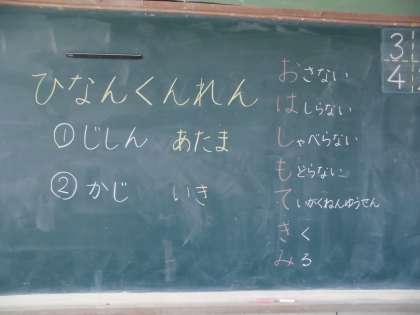 ひなんくんれん
①じしん　あたま
②かじ　いき
おさない
はしらない
しゃべらない
もどらない
ていがくねんゆうせん
きく
みろ
3
4